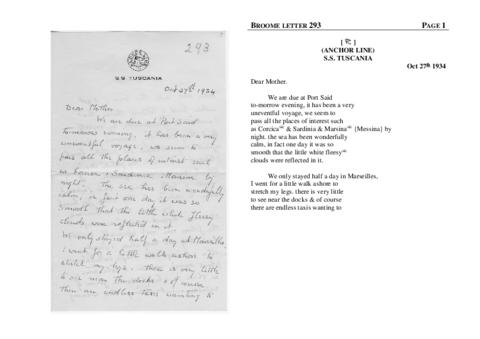 293
S.S. TUSCANIA
Oct 27th 1934
Dear Mother.
We are due at Port Said
tomorrow evening, it has been a very
uneventful voyage, we seem to
pass all the places of interest such
as & Sardinia by
night. The sea has been wonderfully
calm, in fact one day it was so
smooth that the little white fleecy
clouds were reflected in it.
We only stayed half a day at Marseilles,
I went for a little walk ashore to
stretch my legs. there is very little
to see near the docks & of course
there are endless taxis wanting to
BROOME LETTER 293 PAGE 1
(ANCHOR LINE)
S.S. TUSCANIA
Oct 27th 1934
Dear Mother.
We are due at Port Said
to-morrow evening, it has been a very
uneventful voyage, we seem to
pass all the places of interest such
as Corcica & Sardinia & Marsina {Messina} by
night. the sea has been wonderfully
calm, in fact one day it was so
smooth that the little white fleesy
clouds were reflected in it.
We only stayed half a day in Marseilles,
I went for a little walk ashore to
stretch my legs. there is very little
to see near the docks & of course
there are endless taxis wanting to